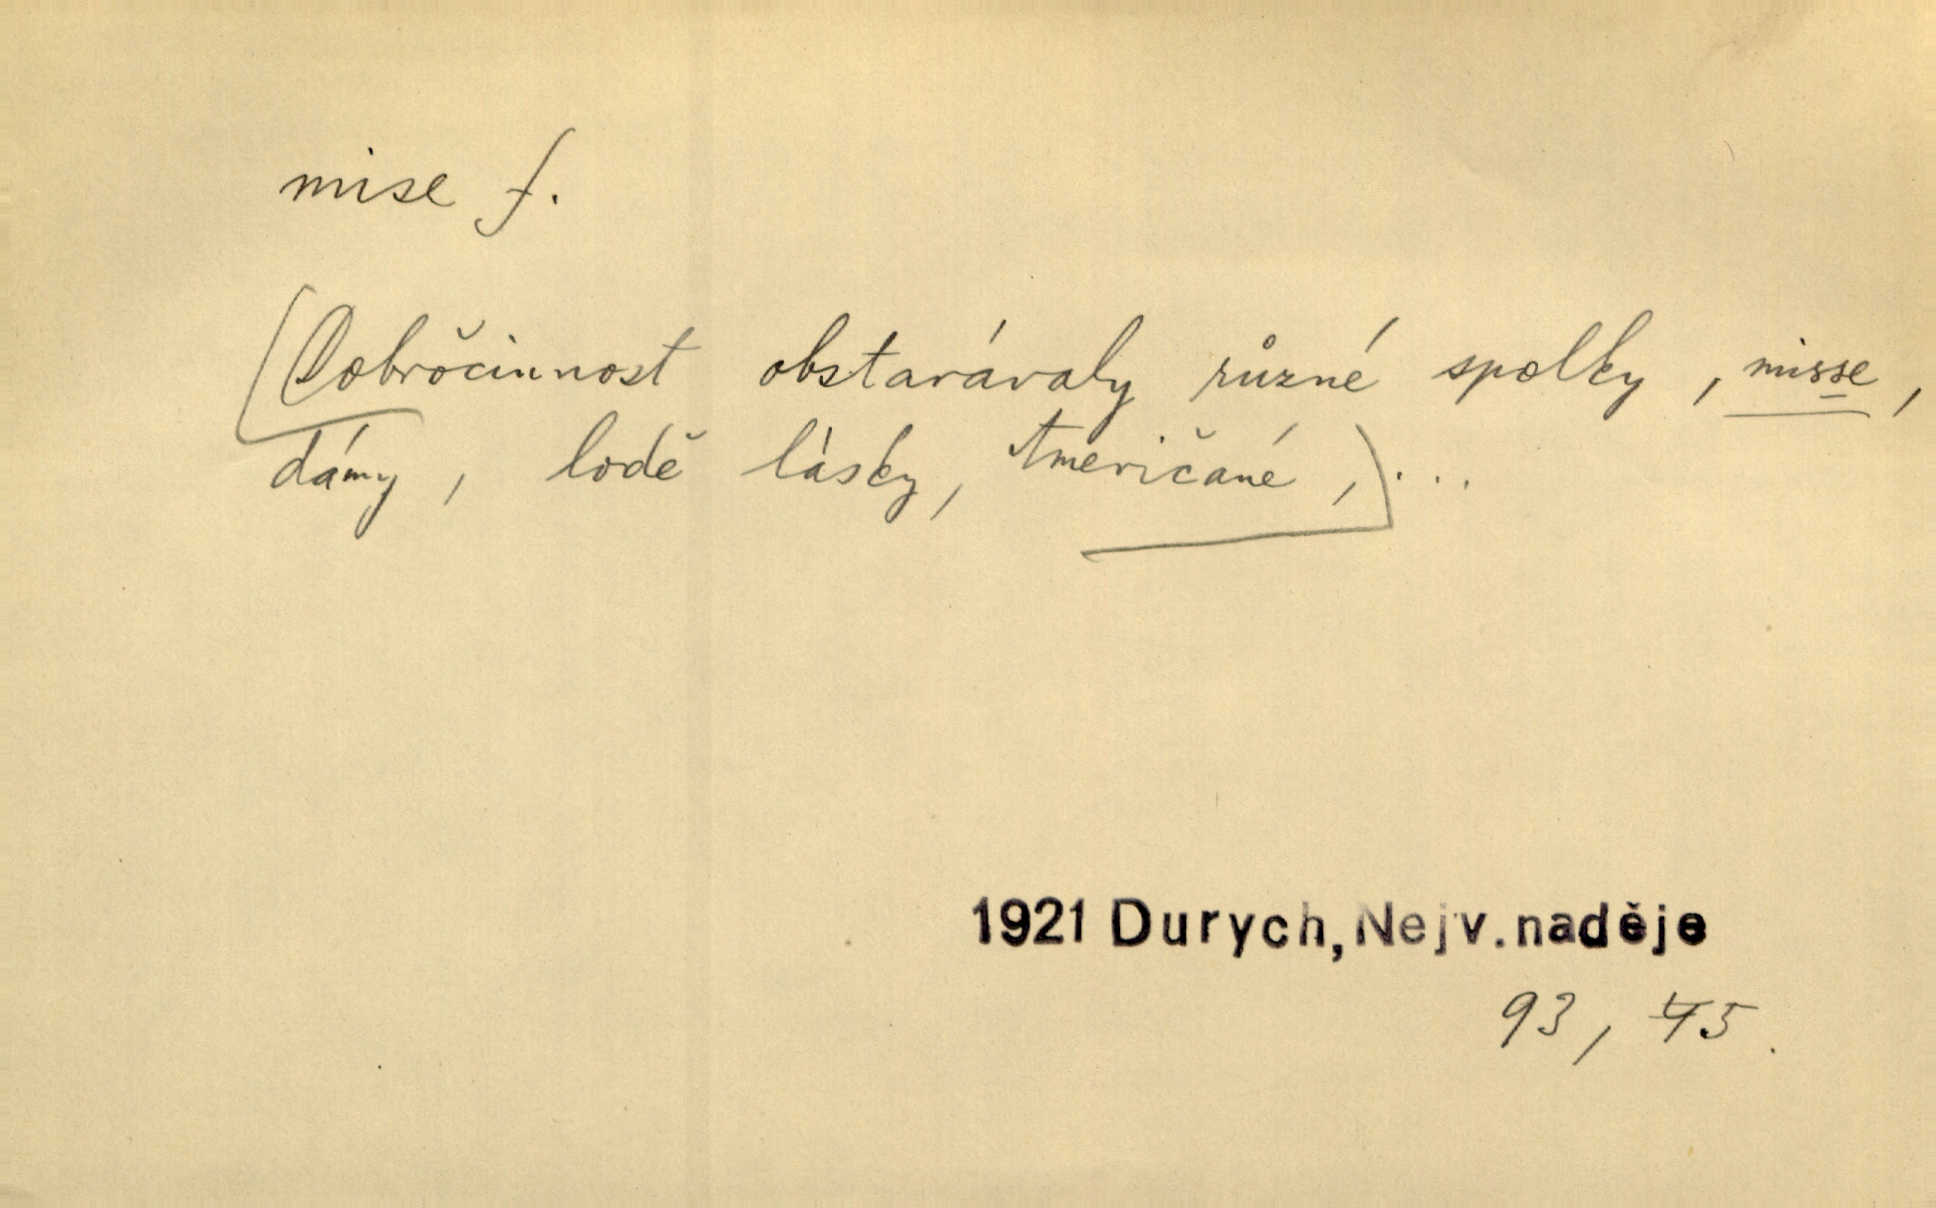 mise f.
Dobročinnost obstarávaly různé spolky, misse,
dámy, lodě lásky, Američané, ...
1921 Durych, Nejv. naděje
93, 45.